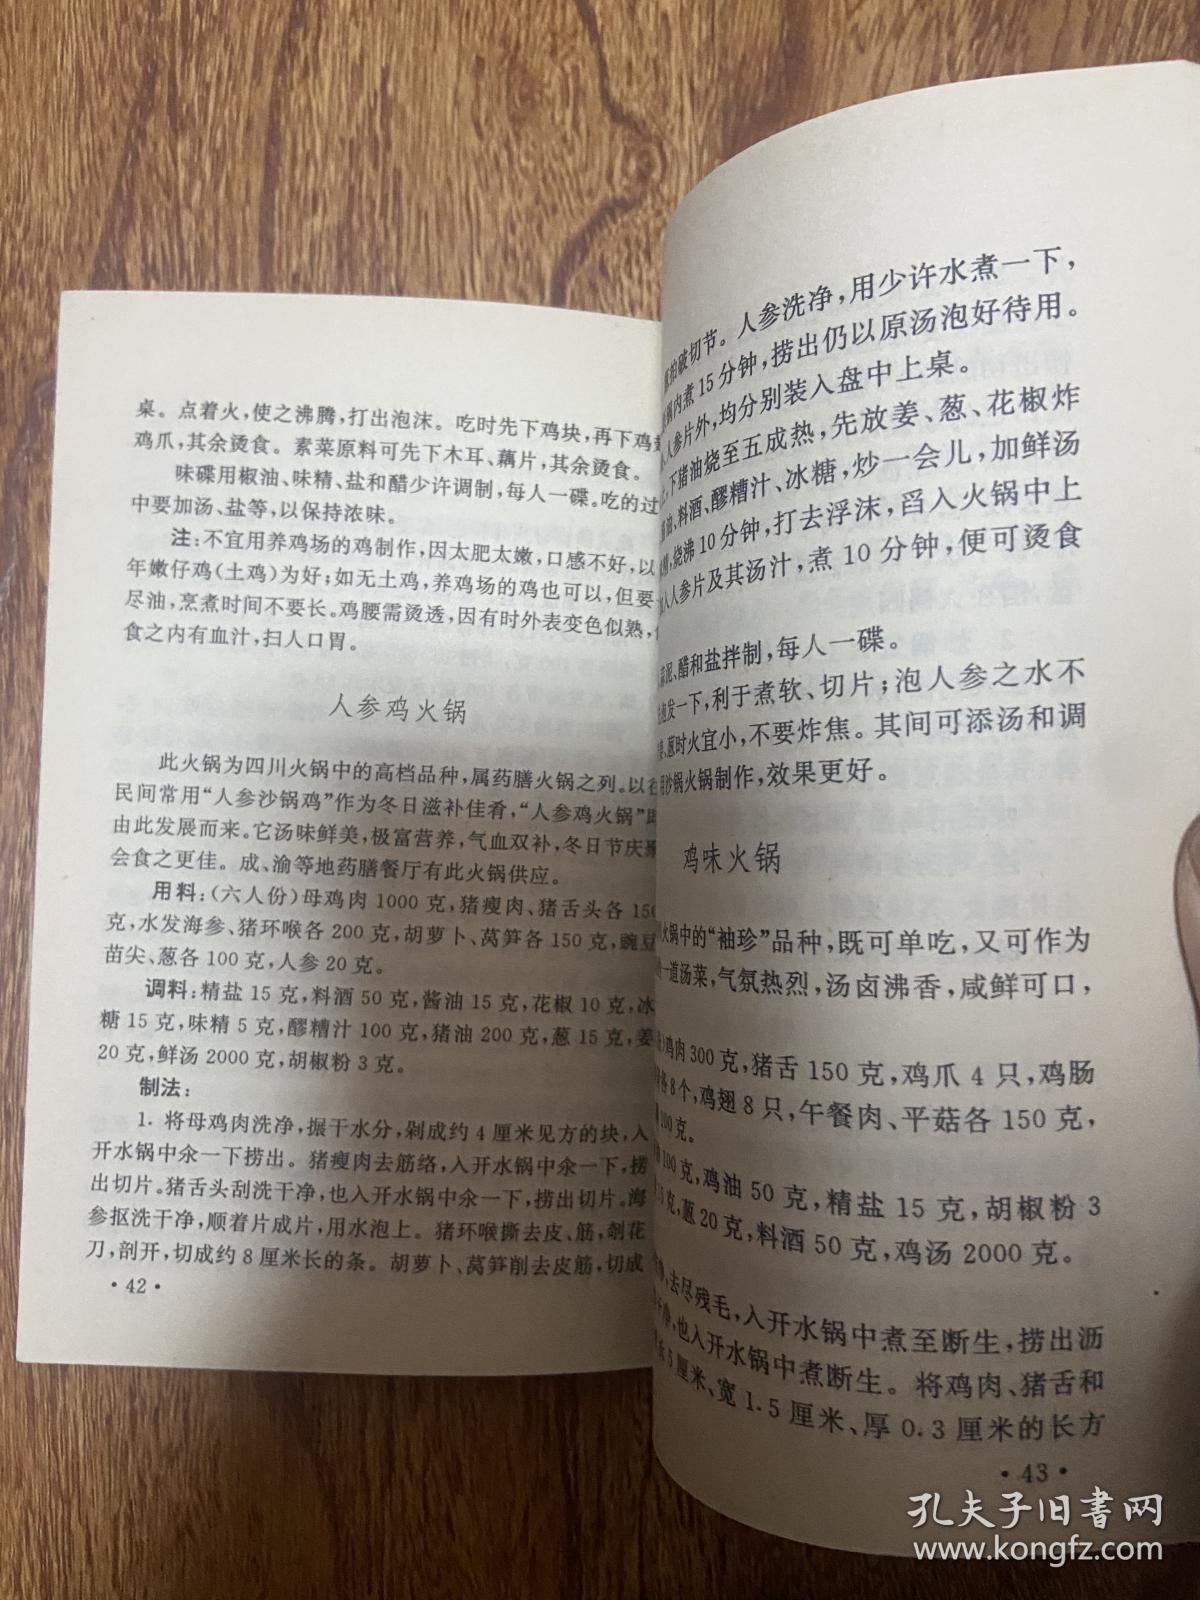 桌。点着火，使之沸腾，打出泡沫。吃时先下鸡块，再下鸡
鸡爪，其余烫食。素菜原料可先下木耳、藕片，其余烫食。
味碟用椒油、味精、盐和醋少许调制，每人一碟。吃的过
中要加汤、盐等，以保持浓味。
注：不宜用养鸡场的鸡制作，因太肥太嫩，口感不好，以
年嫩仔鸡（土鸡）为好；如无土鸡，养鸡场的鸡也可以，但要
尽油，烹煮时间不要长。鸡腰需烫透，因有时外表变色似熟，
食之内有血汁，扫人口胃。
人参鸡火锅
此火锅为四川火锅中的高档品种，属药膳火锅之列。以
民间常用“人参沙锅鸡”作为冬日滋补佳肴，“人参鸡火锅”
由此发展而来。它汤味鲜美，极富营养，气血双补，冬日节庆
会食之更佳。成、渝等地药膳餐厅有此火锅供应。
用料：（六人份）母鸡肉 1000 克，猪瘦肉、猪舌头各 150
克，水发海参、猪环喉各 200 克，胡萝卜、莴笋各 150 克，豌豆
苗尖、葱各 100 克，人参 20 克。
调料：精盐 15 克，料酒 50 克，酱油 15 克，花椒 10 克，冰
糖 15 克，味精 5 克，醪糟汁 100 克，猪油 200 克，葱 15 克，姜
20 克，鲜汤 2000 克，胡椒粉 3 克。
制法：
1. 将母鸡肉洗净，搌干水分，剁成约 4 厘米见方的块，入
开水锅中汆一下捞出。猪瘦肉去筋络，入开水锅中汆一下，捞
出切片。猪舌头刮洗干净，也入开水锅中汆一下，捞出切片。海
参抠洗干净，顺着片成片，用水泡上。猪环喉撕去皮、筋，剞花
刀，剖开，切成约 8 厘米长的条。胡萝卜、莴笋削去皮筋，切成
·42·
拍破切节。人参洗净，用少许水煮一下，
锅内煮 15 分钟，捞出仍以原汤泡好待用。
、人参片外，均分别装入盘中上桌。
，下猪油烧至五成热，先放姜、葱、花椒炸
油、料酒、醪糟汁、冰糖，炒一会儿，加鲜汤
，烧沸 10 分钟，打去浮沫，舀入火锅中上
入人参片及其汤汁，煮 10 分钟，便可烫食
泥、醋和盐拌制，每人一碟。
发一下，利于煮软、切片；泡人参之水不
、葱时火宜小，不要炸焦。其间可添汤和调
用沙锅火锅制作，效果更好。
鸡味火锅
火锅中的“袖珍”品种，既可单吃，又可作为
一道汤菜，气氛热烈，汤卤沸香，咸鲜可口，
）鸡肉 300 克，猪舌 150 克，鸡爪 4 只，鸡肠
各 8 个，鸡翅 8 只，午餐肉、平菇各 150 克，
100 克。
100 克，鸡油 50 克，精盐 15 克，胡椒粉 3
克，葱 20 克，料酒 50 克，鸡汤 2000 克。
，去尽残毛，入开水锅中煮至断生，捞出沥
净，也入开水锅中煮断生。将鸡肉、猪舌和
5 厘米、宽 1.5 厘米、厚 0.3 厘米的长方
·43·
孔夫子旧书网
www.kongfz.com